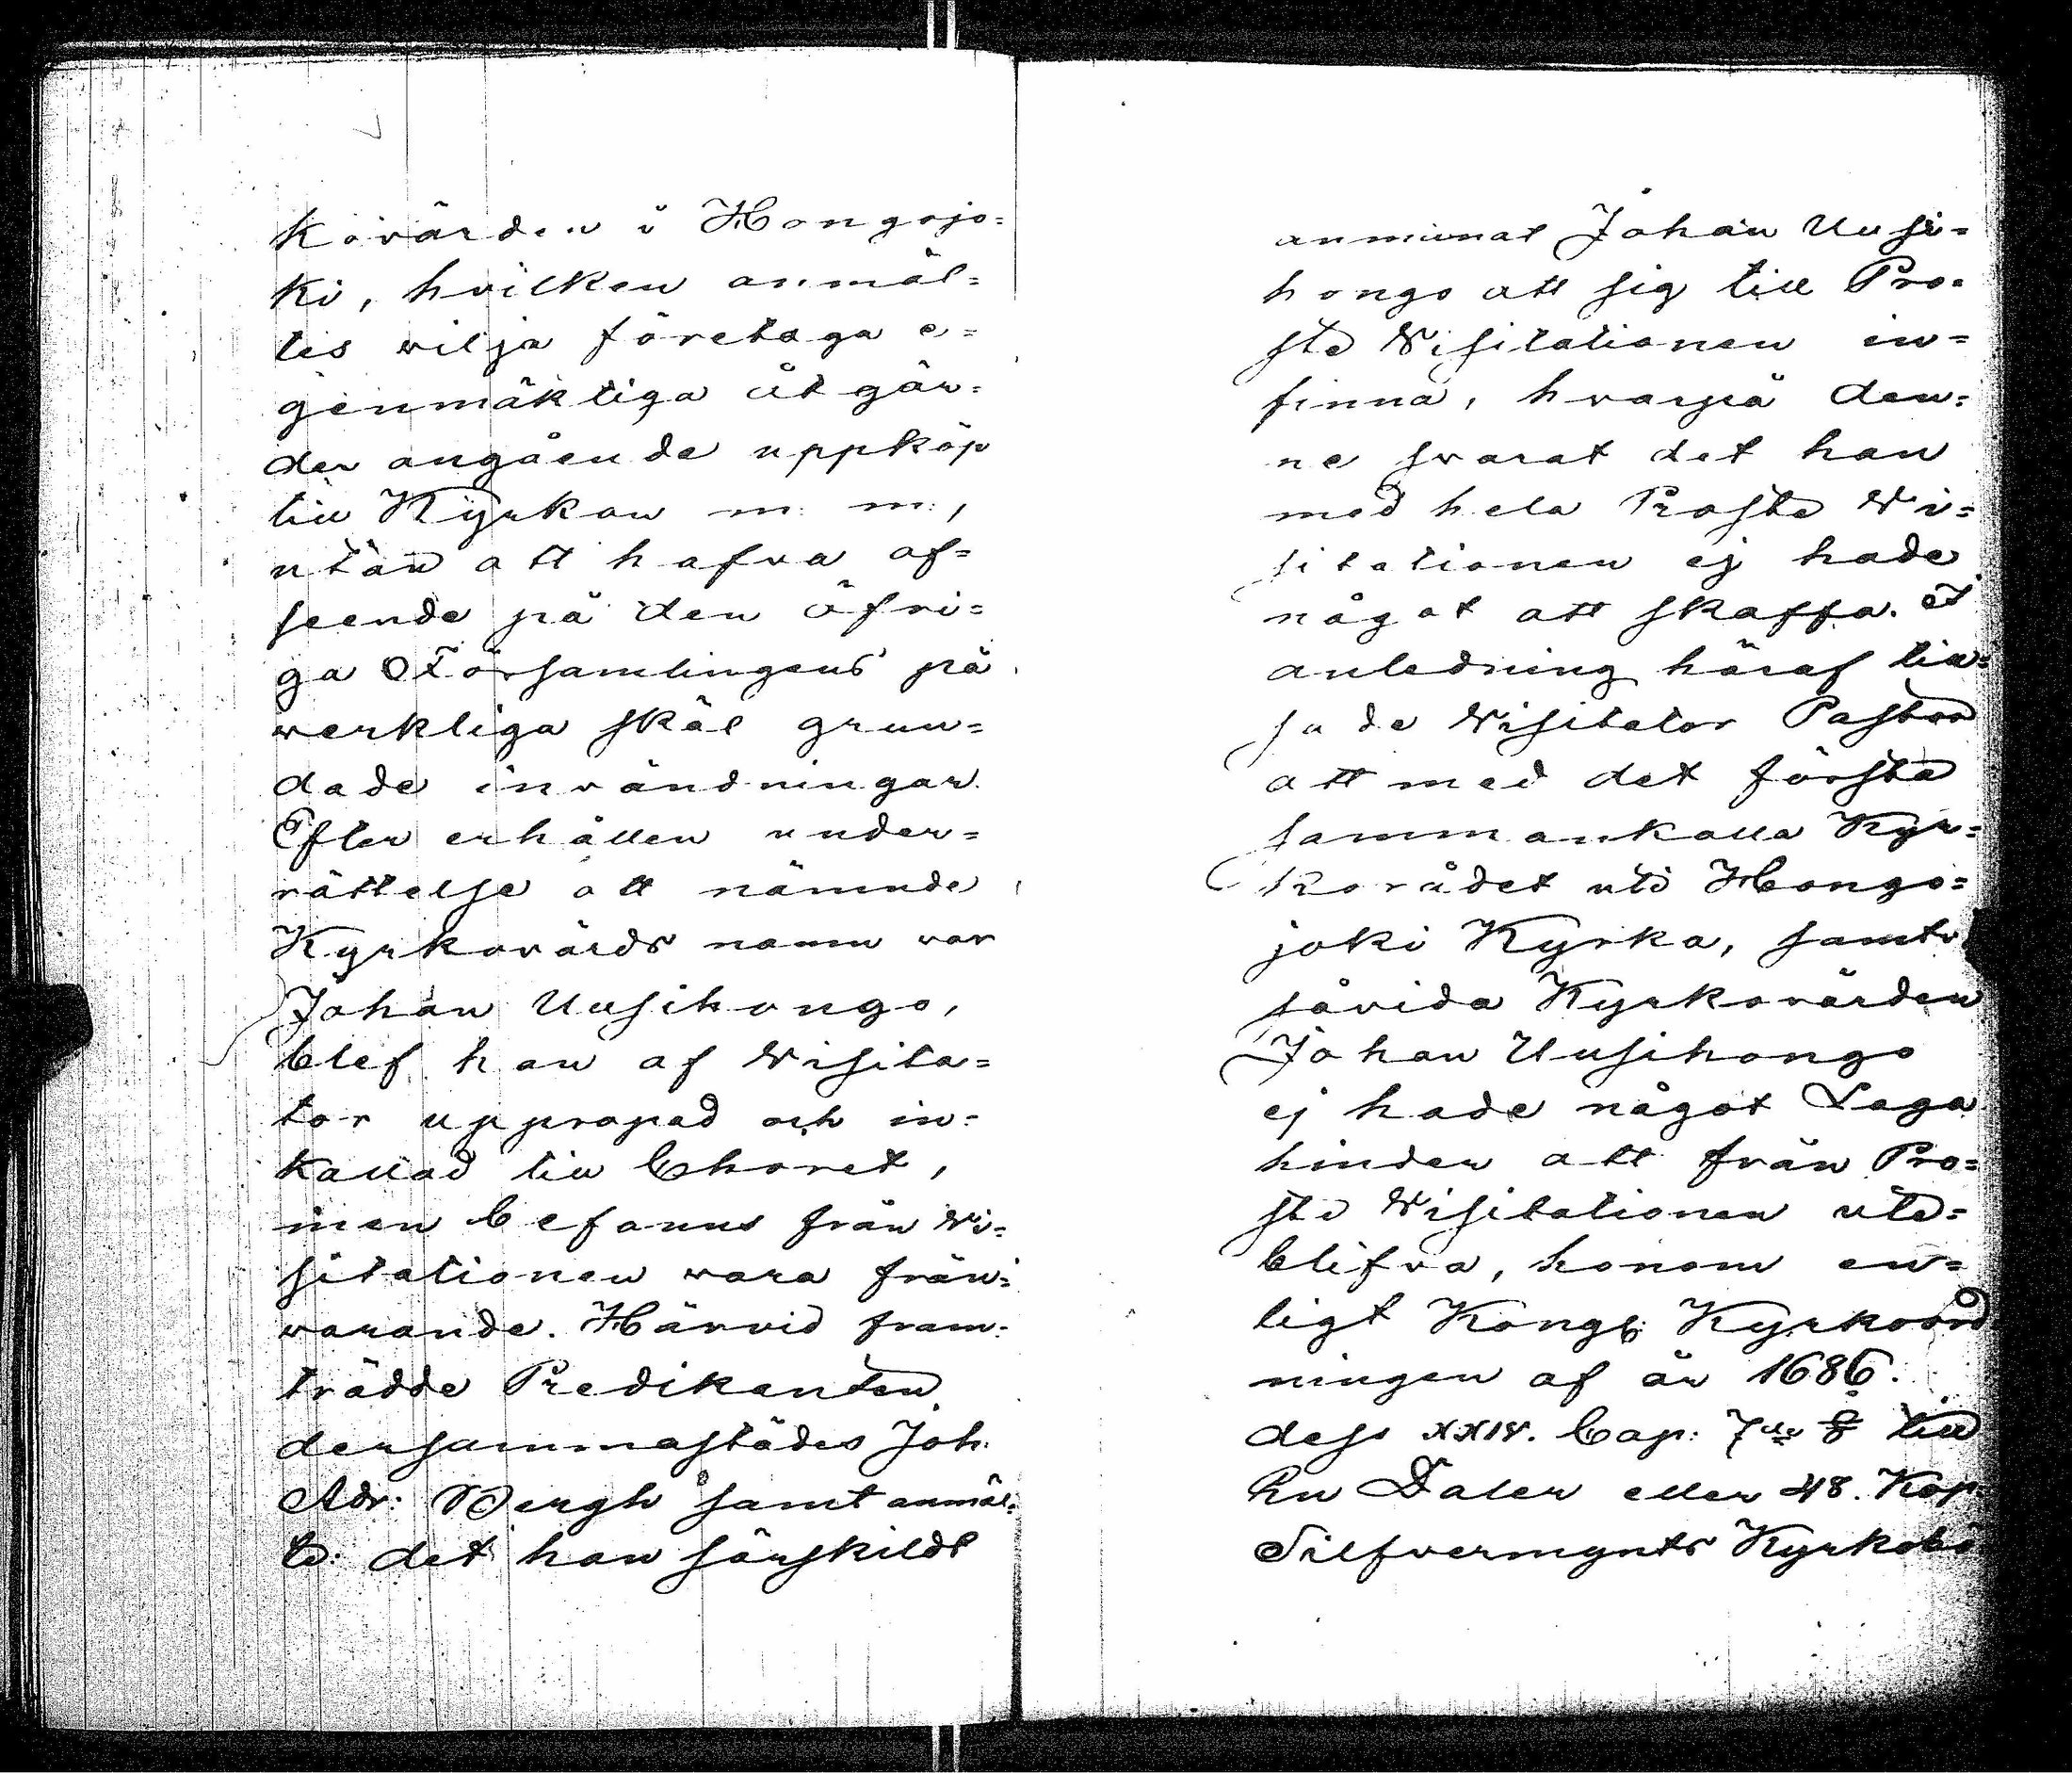 kovärden i Hongojo=
ki, hvilken anmäl=
tes wilja företaga e=
genmäktiga åtgär=
der angående uppköp
till Kyrkan m: m:,
utan att hafva af=
seende på den öfri=
ga Församlingens på
verkliga skäl grun=
dade invändningar.
Efter erhållen under=
rättelse att nämnde
Kyrkovärds namn var
Johan Uusihongo,
blef han af Visita=
tor uppropad och in=
kallad till Choret,
men befanns från Vi=
sitationen vara från=
varande. Härvid fram=
trädde Predikanten
dersammastädes Joh:
Adr: Bergh samt anmäl=
te: det han särskildt
anmanat Johan Uusi=
hongo att sig till Pro=
ste Visitationen in=
finna, hvarpå den=
ne svarat det han
med hela Proste Vi=
sitationen ej hade
något att skaffa. I
anledning häraf till=
sade Visitator Pastor
att med det första
sammankalla Kyr=
korådet uti Hongo=
joki Kyrka, samt
såvida Kyrkovärden
Johan Uusihongo
ej hade något Laga
hinder att från Pro=
ste Visitationen ute=
blifva, honom en=
ligt Kongl: Kyrkoord
ningen af år 1686.
dess XXIV. Cap: 7de § till
En Daler eller 48. Kop
Silfvermynts Kyrkobö